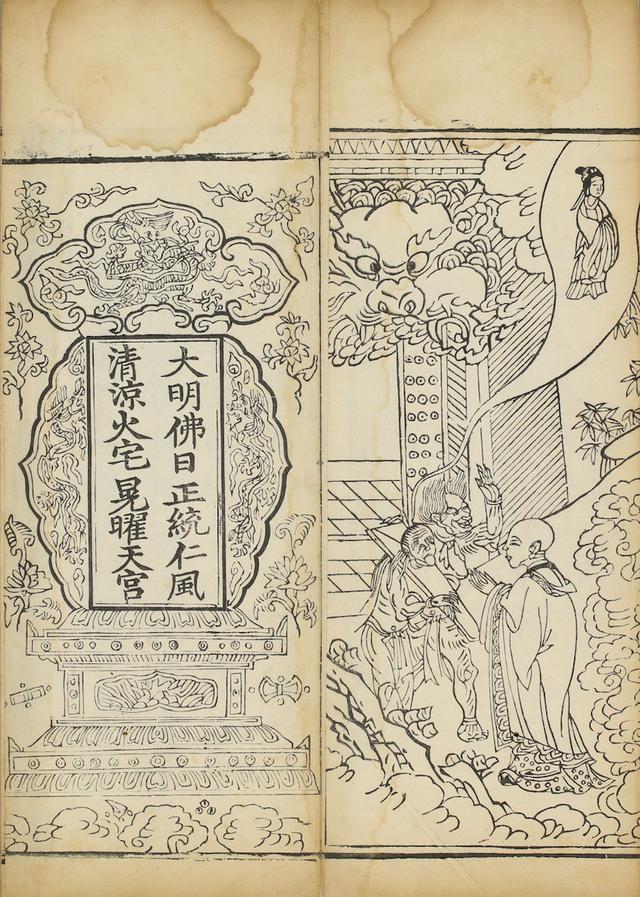 大明佛日正統仁風
清涼火宅晃曜天宮